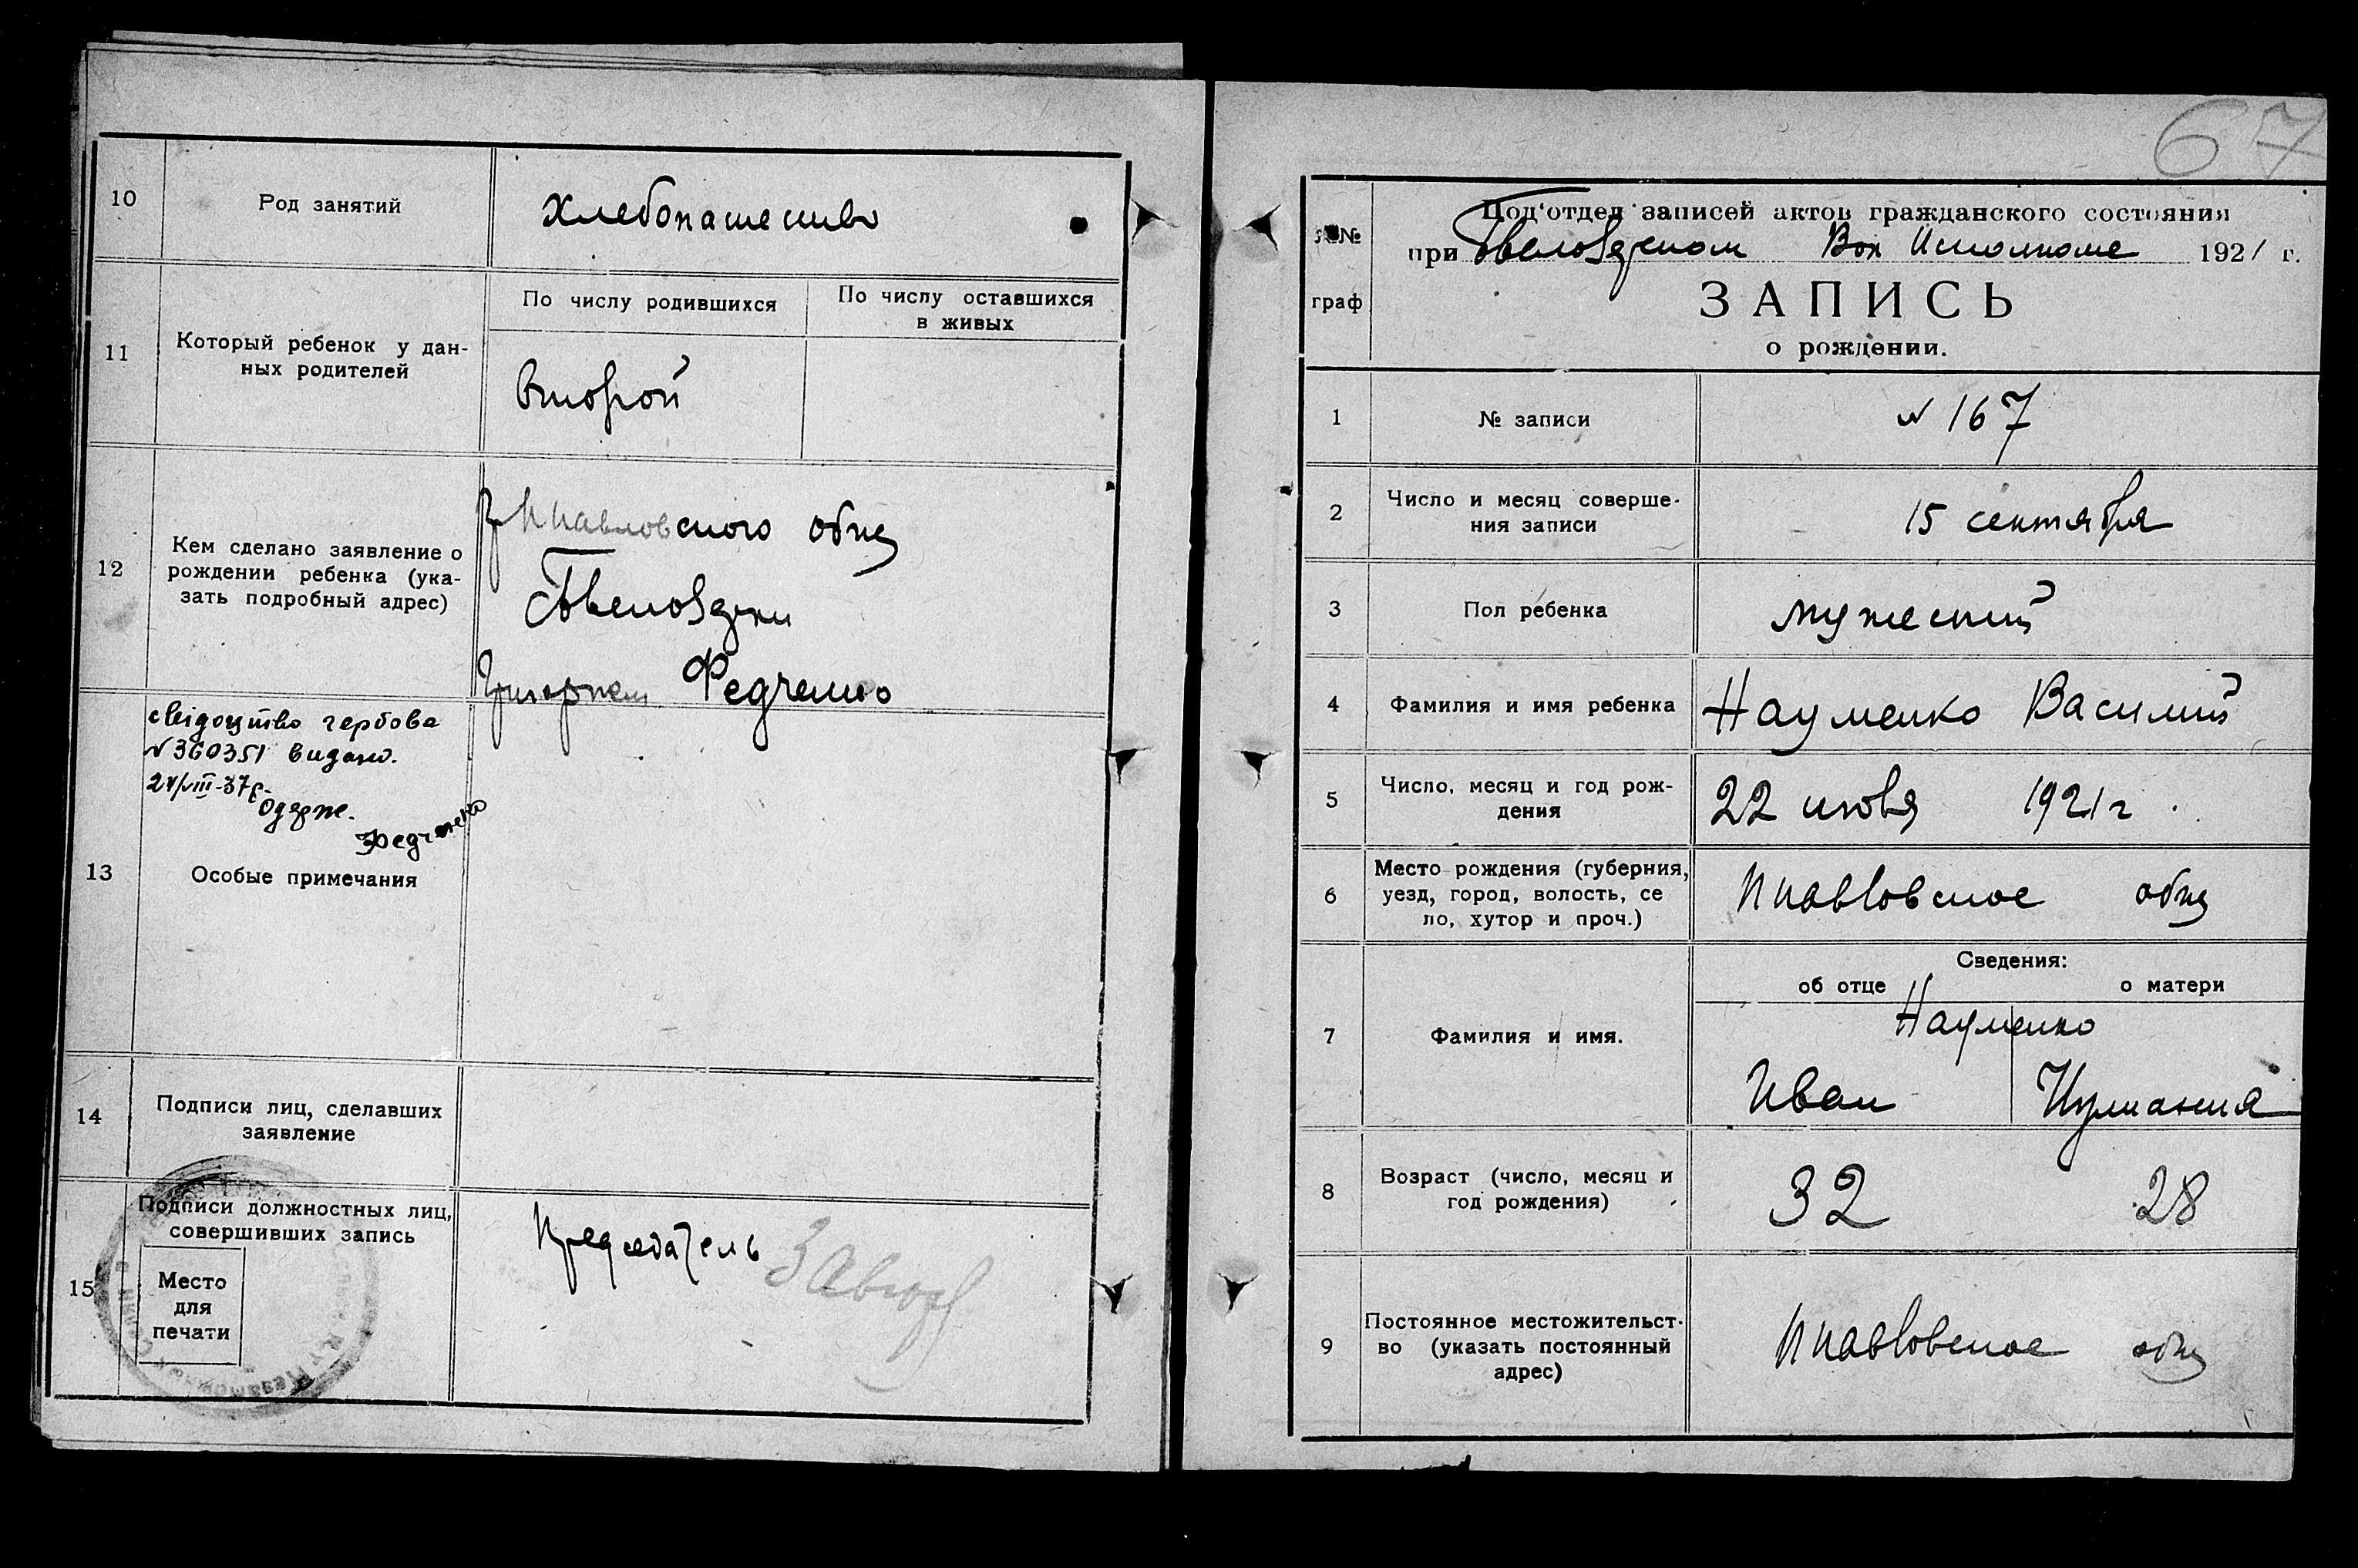 10
Род занятий
Хлебопашество
11
Который ребенок у дан-
ных родителей
По числу родившихся
По числу оставшихся
в живых
второй
12
Кем сделано заявление о
рождении ребенка (ука-
зать подробный адрес)
ского общ
Федченко
свідоцтво гербова
№ 360351 видано.
24/VIII-37р.
Одерж.
Федченко
13
Особые примечания
14
Подписи лиц, сделавших
заявление
15
Подписи должностных лиц,
совершивших запись
Место
для
печати
Председатель
67
№№
граф
Под'отдел записей актов гражданского состояния
при Вол Исполкоме 1921 г.
ЗАПИСЬ
о рождении.
1
№ записи
№ 167
2
Число и месяц соверше-
ния записи
15 сентября
3
Пол ребенка
мужеский
4
Фамилия и имя ребенка
Науменко Василий
5
Число, месяц и год рож-
дения
22 1921 г.
6
Место рождения (губерния,
уезд, город, волость, се
ло, хутор и проч.)
общ
7
Фамилия и имя.
Сведения:
об отце
о матери
Науменко
Иван
8
Возраст (число, месяц и
год рождения)
32
28
9
Постоянное местожительст-
во (указать постоянный
адрес)
общ